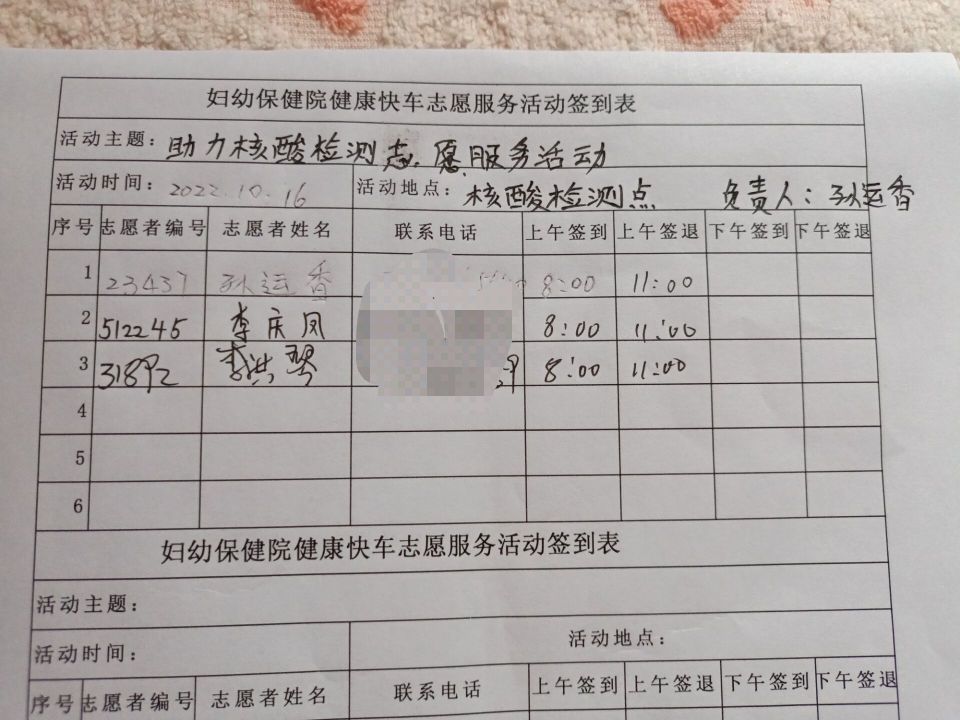 妇幼保健院健康快车志愿服务活动签到表
活动主题：助力核酸检测志愿服务活动
活动时间：2022.10.16 活动地点：核酸检测点 负责人：孙运香
序号 志愿者编号 志愿者姓名 联系电话 上午签到 上午签退 下午签到 下午签退
1 23437 孙运香 8:00 11:00
2 512245 李庆凤 8:00 11:00
3 李洪琴 8:00 11:00
4
5
6
妇幼保健院健康快车志愿服务活动签到表
活动主题：
活动时间： 活动地点：
序号 志愿者编号 志愿者姓名 联系电话 上午签到 上午签退 下午签到 下午签退